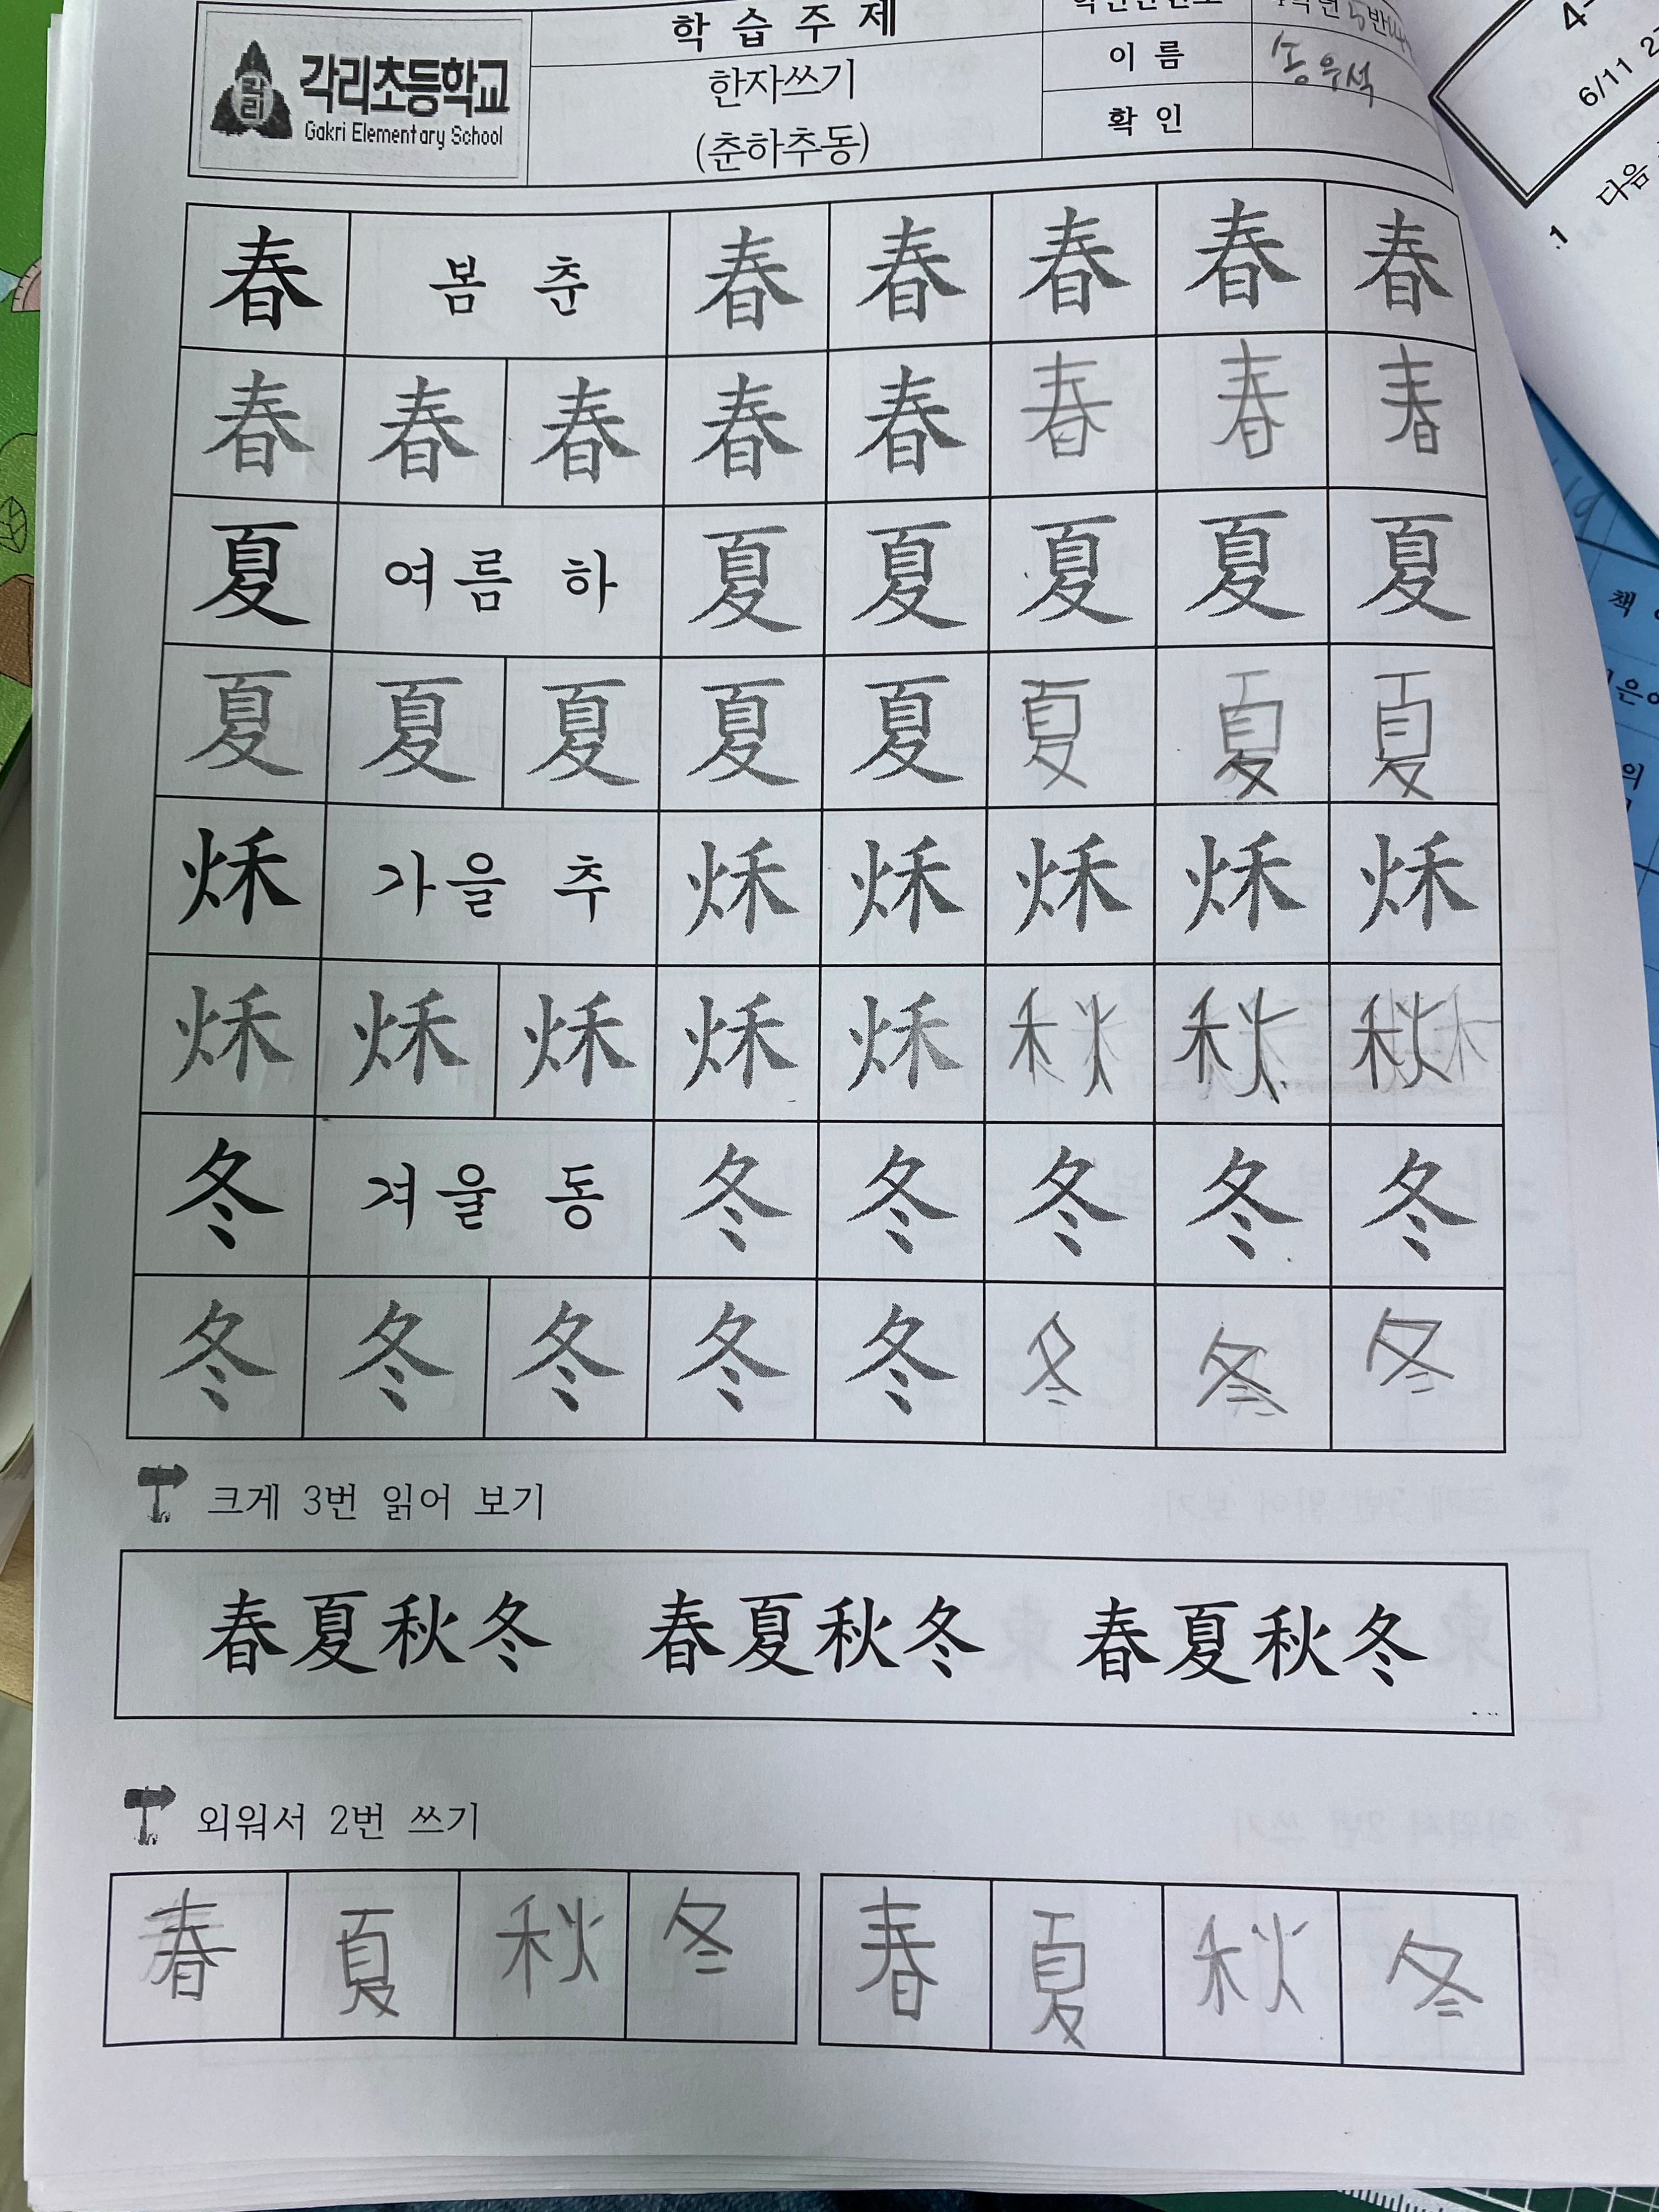 각리
각리초등학교
Gakri Elementary School
학 습 주 제
한자쓰기
(춘하추동)
이 름 송우석
확 인
春 봄 춘 春 春 春 春 春
春 春 春 春 春 春 春 春
夏 여름 하 夏 夏 夏 夏 夏
夏 夏 夏 夏 夏 夏 夏 夏
秌 가을 추 秌 秌 秌 秌 秌
秌 秌 秌 秌 秌 秋 秋 秋
冬 겨울 동 冬 冬 冬 冬 冬
冬 冬 冬 冬 冬 冬 冬 冬
크게 3번 읽어 보기
春夏秋冬 春夏秋冬 春夏秋冬
외워서 2번 쓰기
春 夏 秋 冬 春 夏 秋 冬
6/11
1 다음
책